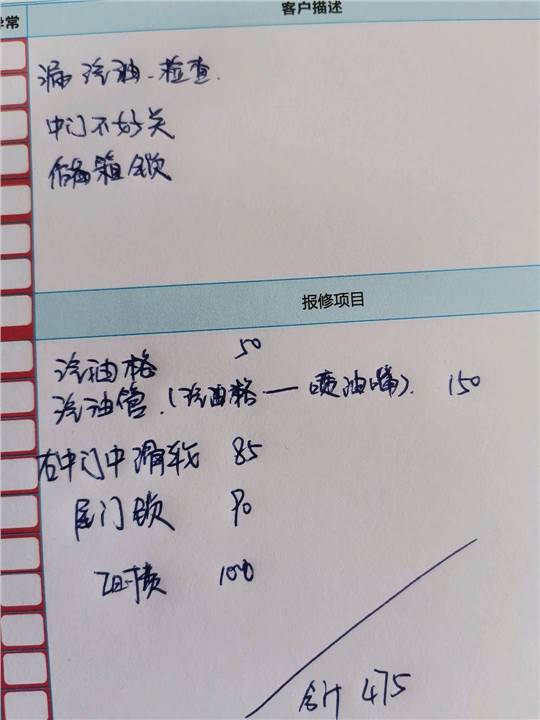 异常
客户描述
漏汽油.检查.
中门不好关
储备箱锁
报修项目
汽油格 50
汽油管.(汽油格——喷油嘴). 150
右中门中滑轮 85
尾门锁 90
100
合计 475